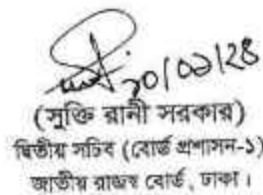 ২০/০১/২৪
(সুক্তি রানী সরকার)
দ্বিতীয় সচিব (বোর্ড প্রশাসন-১)
জাতীয় রাজস্ব বোর্ড, ঢাকা।